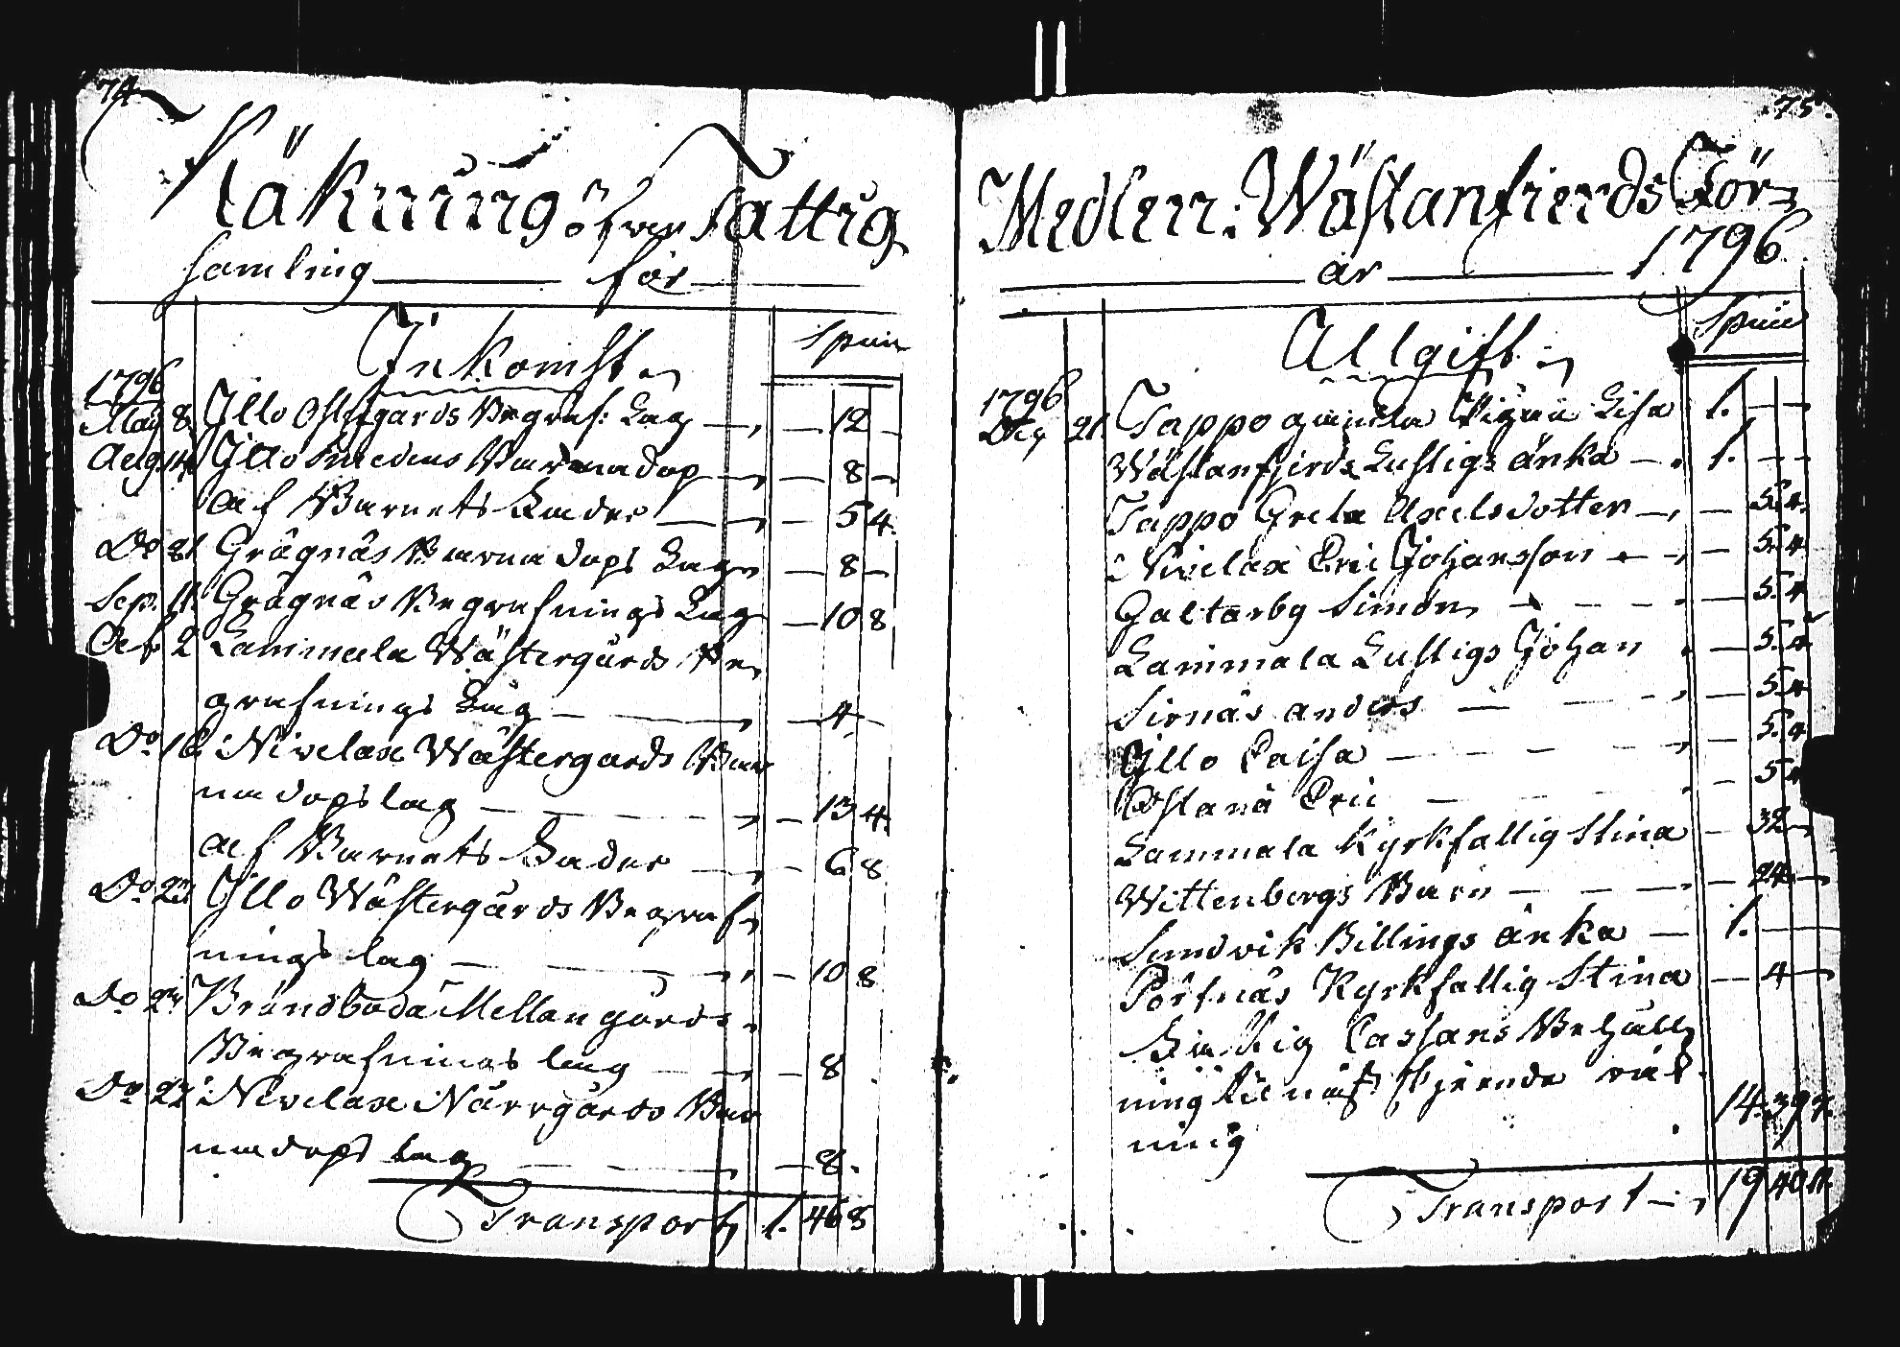 74
Räkning öfver Fattig
samling för
Inkomst
Spcie
1796
May 8 Jllo Östergårds Begraf: Lag — 12 —
Aug 14 Jllo Smedens Barnadop — 8 —
af Barnets Fader — 5 4
Do 21 Grägnäs Barnadops Lag — 8 —
Sep. 11 Grägnäs Begrafnings Lag — 10 8
Octb 2 Lammala Wästergårds Be
grafnings Lag — 4 —
Do 16 Nivelax Wästergårds Bar
nadopslag — 13 4
af Barnets Fader — 6 8
Do 23 Jllo Wästergårds Begraf
ningslag — 10 8
Do Brändboda Mellangårds
Begrafnings lag — 8
Do 27 Nivelax Norrgårds Bar
nadops lag — 8
Transport 1. 46 8
75.
Medlen i Wästanfierds För
år 1796
Utgift
Spcie
1796
21 Tappo Lisa 1. — —
Wästanfjerds Lustigs änka — 1. — —
Tappo Greta Axelsdotter — 5. 4.
Nivelax Eric Johansson — 5. 4
Galtarby Simon — 5. 4
Lammala Lustigs Johan — 5. 4
Sirnäs anders — 5. 4
Jllo Caisa — 5. 4
Östanå Eric — 5 4
Lammala Kyrkfattig Stina — 32 —
Wittenbergs Barn — 24 —
Sundvik Billings änka — 1. —
Pörtnäs Kyrkfattig Stina — 4 —
Fattig Cassans Behåll
ning til näst skjeende räk
ning 14. 39 7.
Transport 19 40 11.